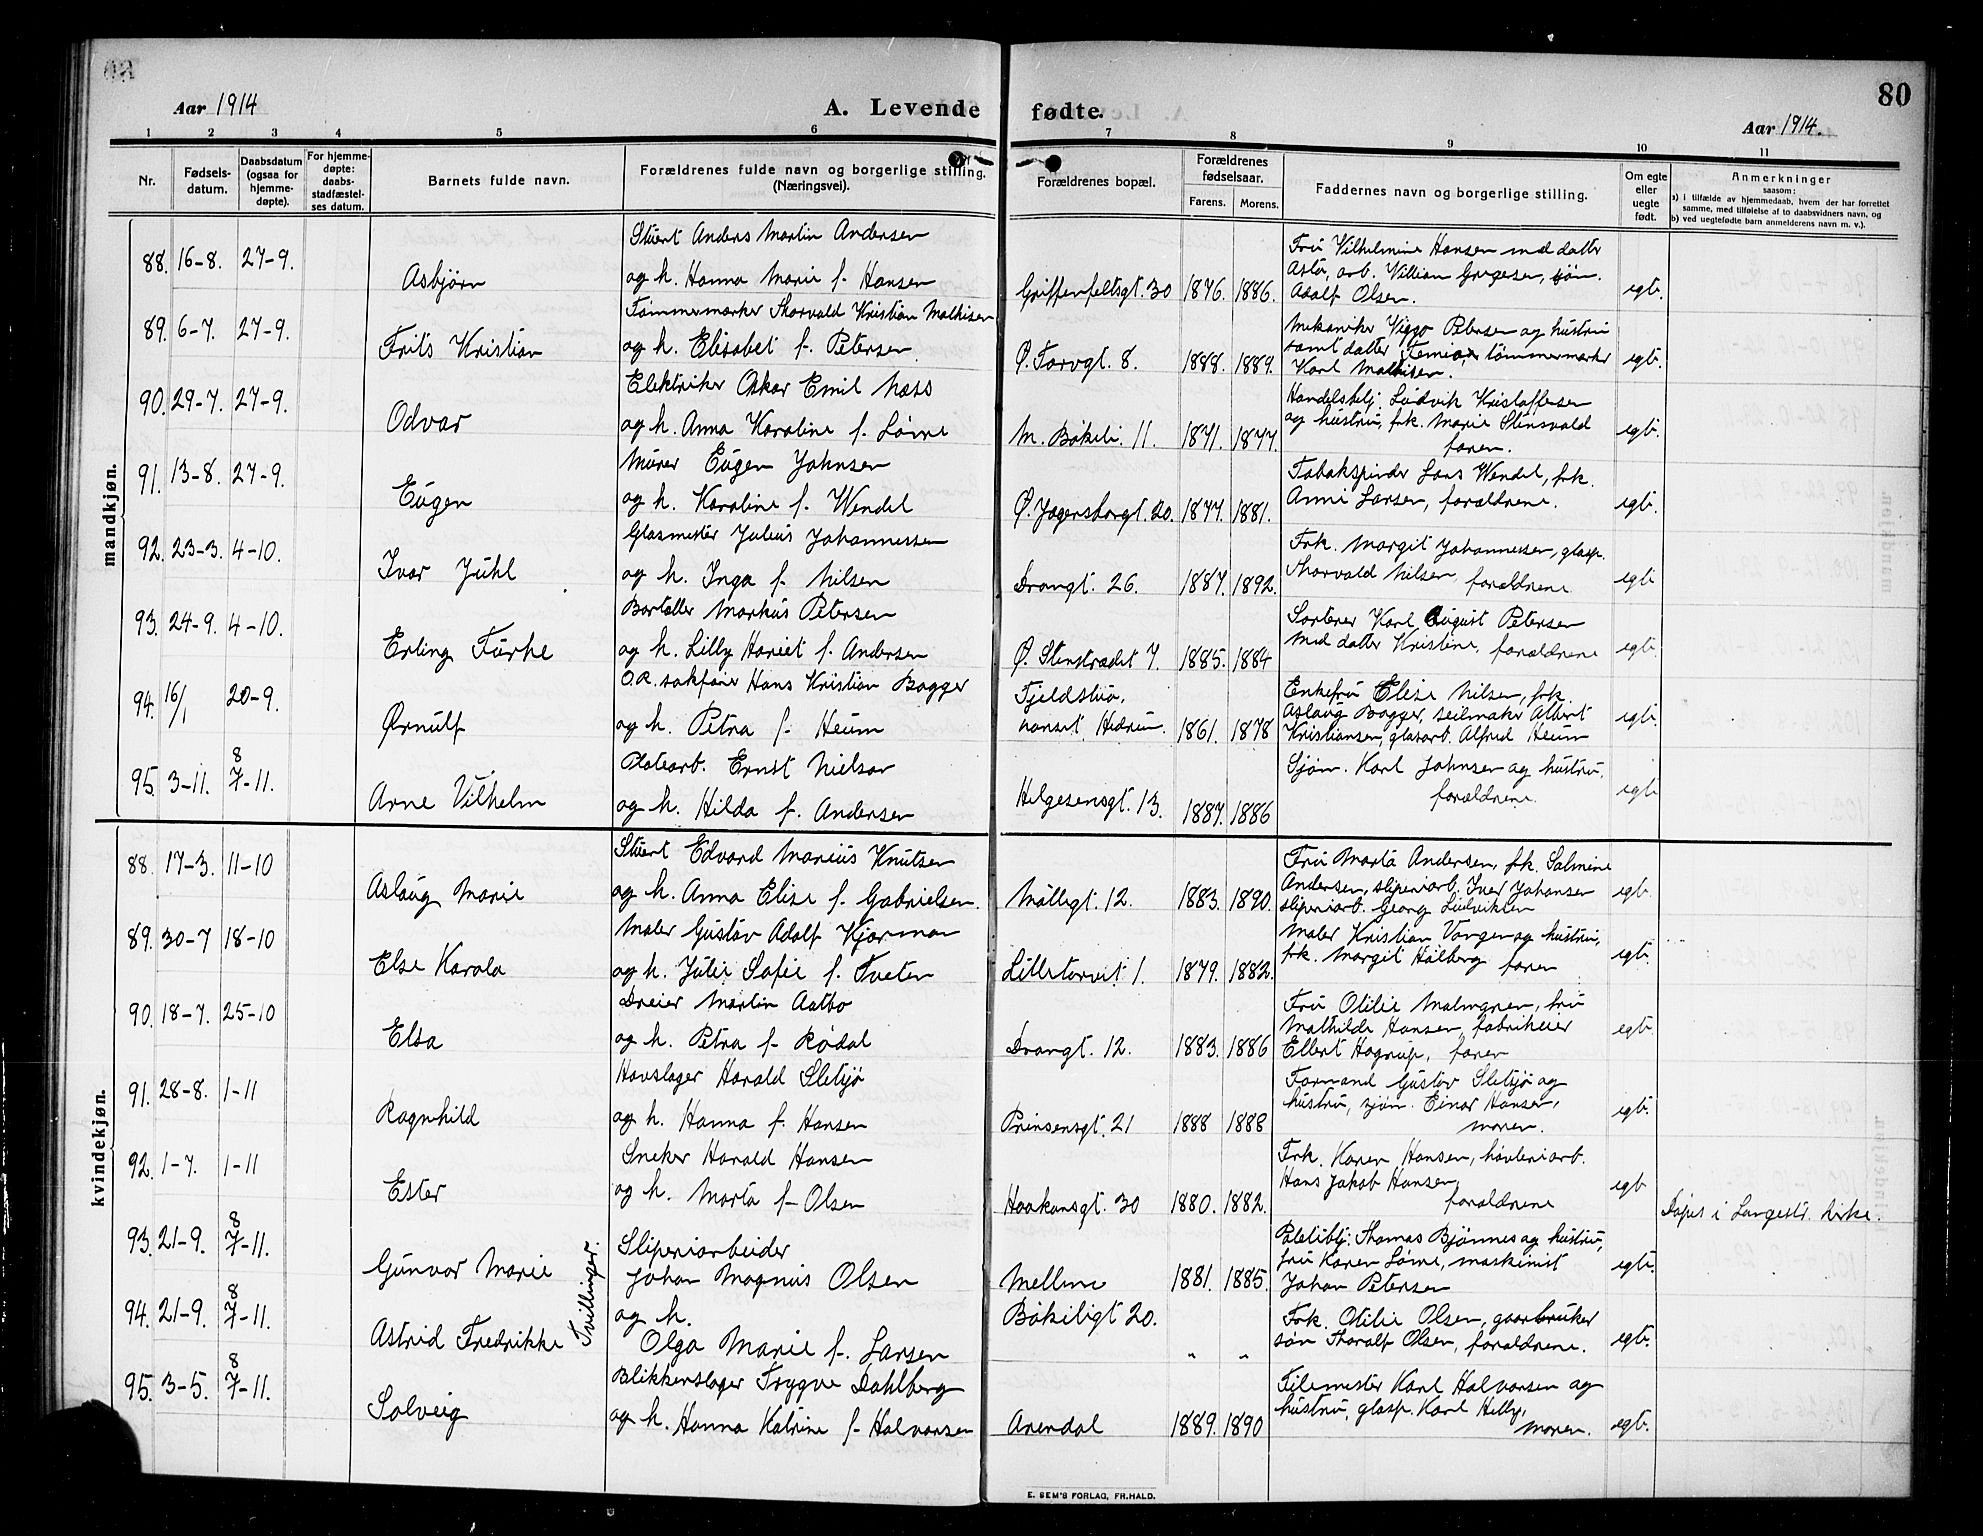 80
Aar 1914
A. Levende fødte.
Aar 1914.
1 2 3 4 5 6 7 8 9 10 11
Nr.
Fødsels-
datum.
Daabsdatum
(ogsaa for
hjemme-
døpte).
For hjemme-
døpte:
daabs-
stadfæstel-
ses datum.
Barnets fulde navn.
Forældrenes fulde navn og borgerlige stilling.
(Næringsvei).
Forældrenes bopæl.
Forældrenes
fødselsaar.
Farens. Morens.
Faddernes navn og borgerlige stilling.
Om egte
eller
uegte
født.
Anmerkninger
saasom:
a) i tilfælde av hjemmedaab, hvem der har forrettet
samme, med tilføielse af to daabsvidners navn, og
b) ved uegtefødte barn anmelderens navn m. v.).
mandkjøn.
88. 16-8. 27-9. Asbjørn
Stuert Anders Martin Andersen
og h. Hanna Marie f. Hansen
Griffenfeltsgt. 30 1876. 1886.
Fru Vilhelmine Hansen med datter
Asta, arb. Villian Gregesen, sjøm.
Adolf Olsen.
egt.
89. 6-7. 27-9. Frits Kristian
Tømmermerker Thorvald Kristian Mathisen
og h. Elisabet f. Petersen
Ø. Torvgt. 8. 1888. 1889.
Mekaniker Viggo Petersen og hustru
samt datter tømmermerker
Karl Mathisen.
egt.
90. 29-7. 27-9. Odvar
Elektriker Oskar Emil Næss
og h. Anna Karoline f. Lørne
M. Bøkeli. 11. 1871. 1877.
Handelsbetj. Ludvik Kristoffersen
og hustru, frk. Marie Stensvold
faren.
egt.
91. 13-8. 27-9. Eugen
Murer Eugen Johnsen
og h. Karoline f. Wendel
Ø. Jegersborgt. 20. 1877. 1881.
Tobakspinder Lars Wendel, frk.
Anna Larsen, forældrene.
egt.
92. 23-3. 4-10. Ivar Juhl
Glasmester Julius Johannessen
og h. Inga f. Nilsen
Drangt. 26. 1887. 1892.
Frk. Margit Johannessen, glasp.
Thorvald Nilsen forældrene
egt.
93. 24-9. 4-10. Erling Furhe
Markus Petersen
og h. Lilly Hariet f. Andersen
Ø. Stenstrædet 7. 1885. 1884
Sorterer Karl August Petersen
med datter Kristine, forældrene
egt.
94. 16/1 20-9. Ørnulf
O.R. sakfører Hans Kristian Bagger
og h. Petra f. Heum
Fjeldstuo,
Hedrum. 1861. 1878
Enkefru Elise Nilsen, frk.
Aslaug Bagger, seilmaker Albert
Kristiansen, glasarb. Alfred Heum
egt.
95. 3-11. 8
7-11. Arne Vilhelm
Platearb. Ernst Nielsar
og h. Hilda f. Andersen
Helgesensgt. 13. 1887. 1886
Sjøm. Karl Johnsen og hustru,
forældrene.
egt.
kvindekjøn.
88. 17-3. 11-10 Aslaug Marie
Stuert Edvard Marius Knutsen
og h. Anna Elise f. Gabrielsen.
Møllegt. 12. 1883. 1890.
Fru Marta Andersen, frk. Salmine
Andersen, sliperiarb. Iver Johansen
sliperiarb. Georg Ludviksen
egt.
89. 30-7 18-10 Else Karola
Maler Gustav Adolf Kjorman
og h. Julie Sofie f. Tveten
Lilletorvet. 1. 1879. 1882.
Maler Kristian Vangen og hustru,
frk. Margit Hølberg faren
egt.
90. 18-7. 25-10 Elsa
Dreier Martin Aatbo
og h. Petra f. Rødal
Drangt. 12. 1883. 1886
Fru Otilie Malmgren, fru
Mathilde Hansen, fabrikeier
Ellert Hagrup, faren
egt.
91. 28-8. 1-11 Ragnhild
Hovslager Harald Sletsjø
og h. Hanna f. Hansen
Prinsensgt. 21 1888 1888
Formand Gustav Sletsjø og
hustru, sjøm. Einar Hansen,
moren.
egt.
92. 1-7. 1-11 Ester
Sneker Harald Hansen
og h. Marta f. Olsen
Haakonsgt. 30 1880. 1882.
Frk. Karen Hansen, høvleriarb.
Hans Jakob Hansen
forældrene
egt
Døpt i Langestr. kirke.
93. 21-9. 8
7-11. Gunvor Marie
Tvillinger.
Sliperiarbeider
Johan Magnus Olsen
Mellem 1881. 1885.
Politibtj. Thomas Bjønnes og hustru,
fru Karen Lørne, maskinist
Johan Petersen
egt.
94. 21-9. 8
7-11. Astrid Fredrikke
og h.
Olga Marie f. Larsen
Bøkeligt 20. „ „
Frk. Otilie Olsen, gaardbruker
søn Thoralf Olsen, forældrene.
egt.
95. 3-5. 8
7-11. Solveig
Blikkenslager Trygve Dahlberg
og h. Hanna Katrine f. Halvorsen
Arendal 1889. 1890
Filemester Karl Halvorsen og
hustru, glasp. Karl Helly,
moren.
egt.
E. SEM'S FORLAG, FR.HALD.